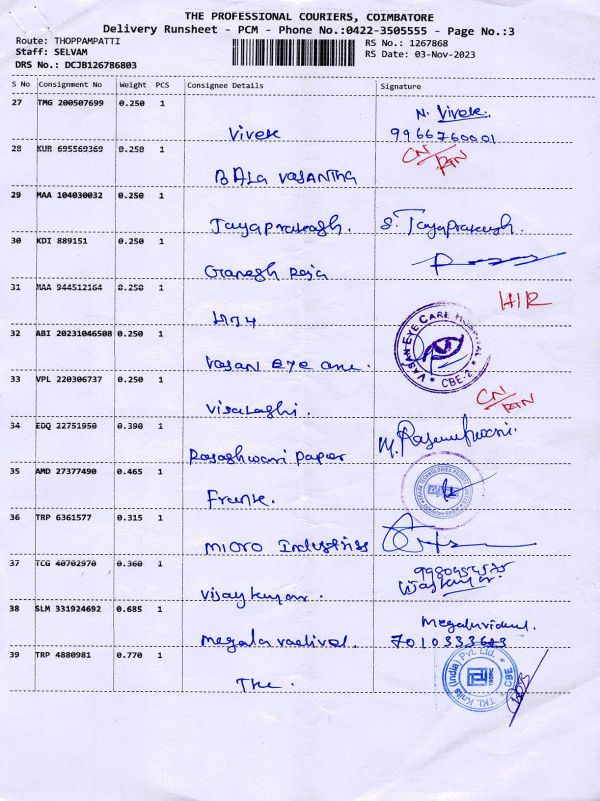 THE PROFESSIONAL COURIERS, COIMBATORE
Delivery Runsheet - PCM - Phone No.:0422-3505555 - Page No.:3
Route: THOPPAMPATTI RS No.: 1267868
Staff: SELVAM RS Date: 03-Nov-2023
DRS No.: DCJB126786803
S No Consignment No Weight PCS Consignee Details Signature
27 TMG 200507699 0.250 1
N. Vivek.
Vivek 9966760001
28 KUR 695569369 0.250 1 CN/RTN
BALA VASANTHA
29 MAA 104030032 0.250 1
Jayaprakash. S. Jayaprakash.
30 KDI 889151 0.250 1
Ganesh Raja
31 MAA 944512164 0.250 1 HIR
32 ABI 20231046508 0.250 1 VASAN EYE CARE HOSPITAL CBE-2
Vasan eye care.
33 VPL 220306737 0.250 1 CN/RTN
Visalashi.
34 EDQ 22751950 0.390 1
Rajeshwari Paper
35 AMD 27377490 0.465 1
36 TRP 6361577 0.315 1
Micro Industries
37 TCG 40702970 0.360 1
Vijaykumar. Vijaykumar.
38 SLM 331924692 0.685 1
Megala vadivel. 7010333
39 TRP 4880981 0.770 1 TKL Knits (India) Pvt. Ltd. CBE